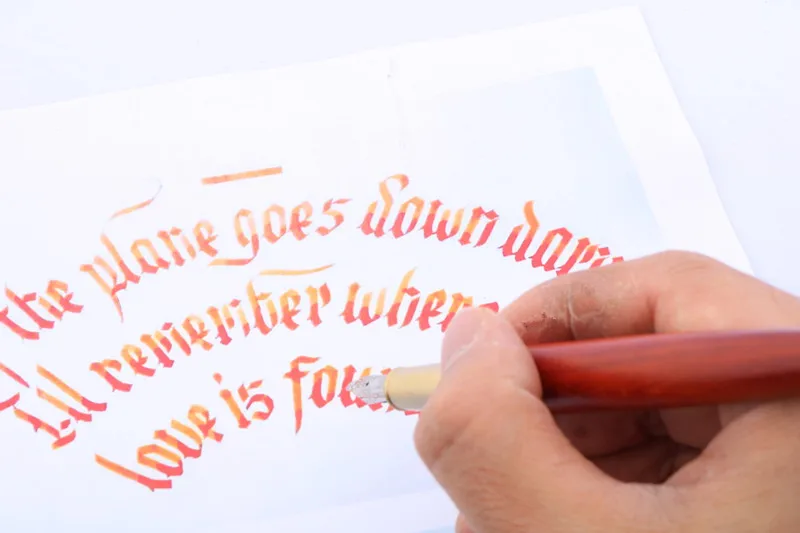 the plane goes down damn
I'll remember where
love is fou